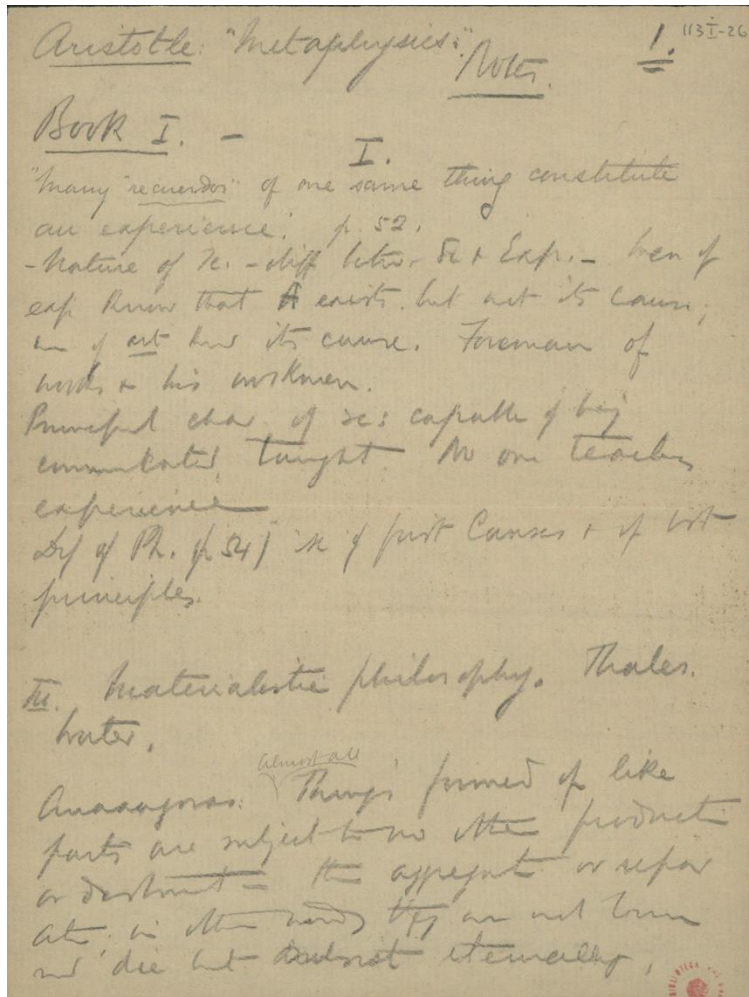 Aristotle: "Metaphysics". Notes. 1. 113 I-26
Book I. — I.
"Many "recuerdos" of one same thing constitute
an experience". p. 52.
- Nature of sc. - diff betw. sc & Exp. - Men of
exp. know that A exists but not its cause;
men of art know its cause. Foreman of
works & his workmen.
Principal char. of sc: capable of being
communicated, taught. No one teaches
experience
Def of Ph. (p. 54) sc of first Causes & of
principles.
III. Materialistic philosophy. Thales.
Water.
almost all
Anaxagoras: Things formed of like
parts are subject to no other production
or destruction = the aggregate or separ
ation in other words they are not born
nor die but subsist eternally.
BIBLIOTECA